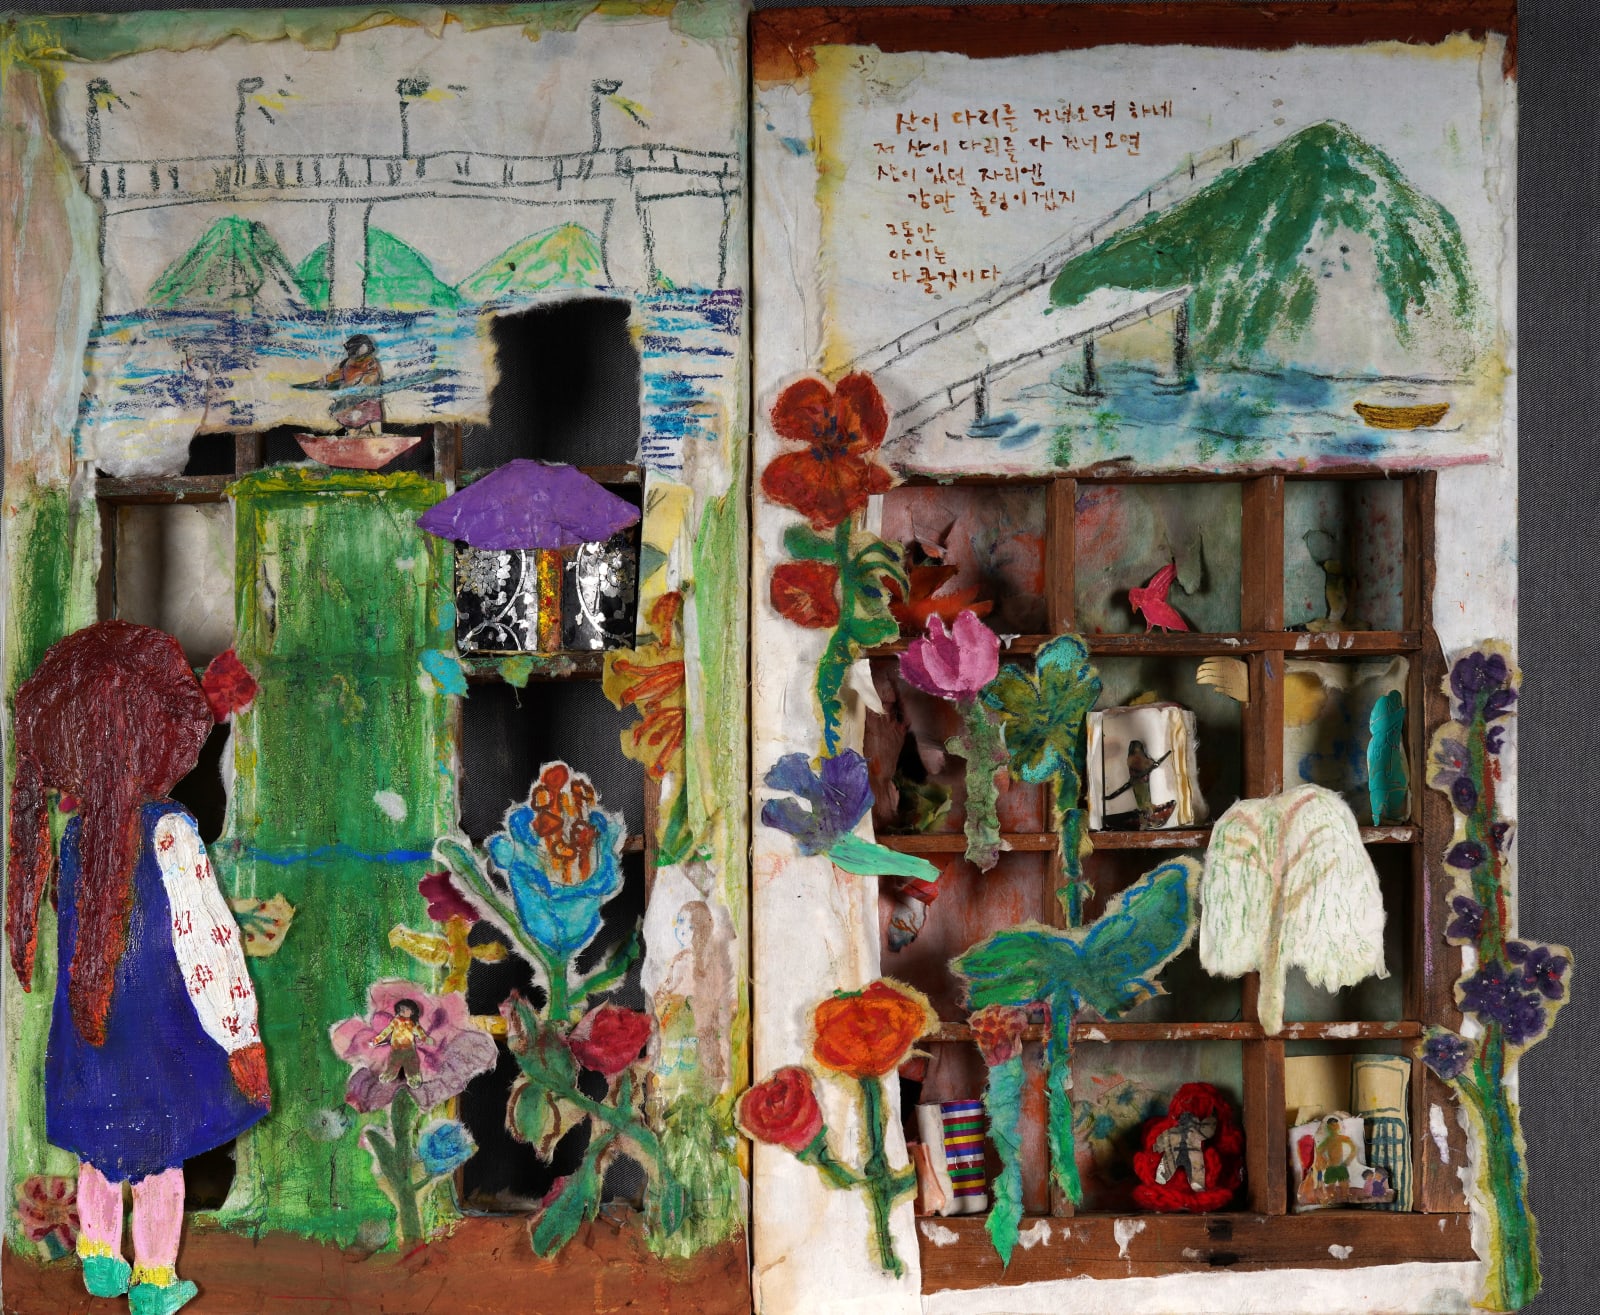 산이 다리를 건너오려 하네
저 산이 다리를 다 건너오면
산이 있던 자리엔
강만 출렁이겠지
그동안
아이는
다 클것이다